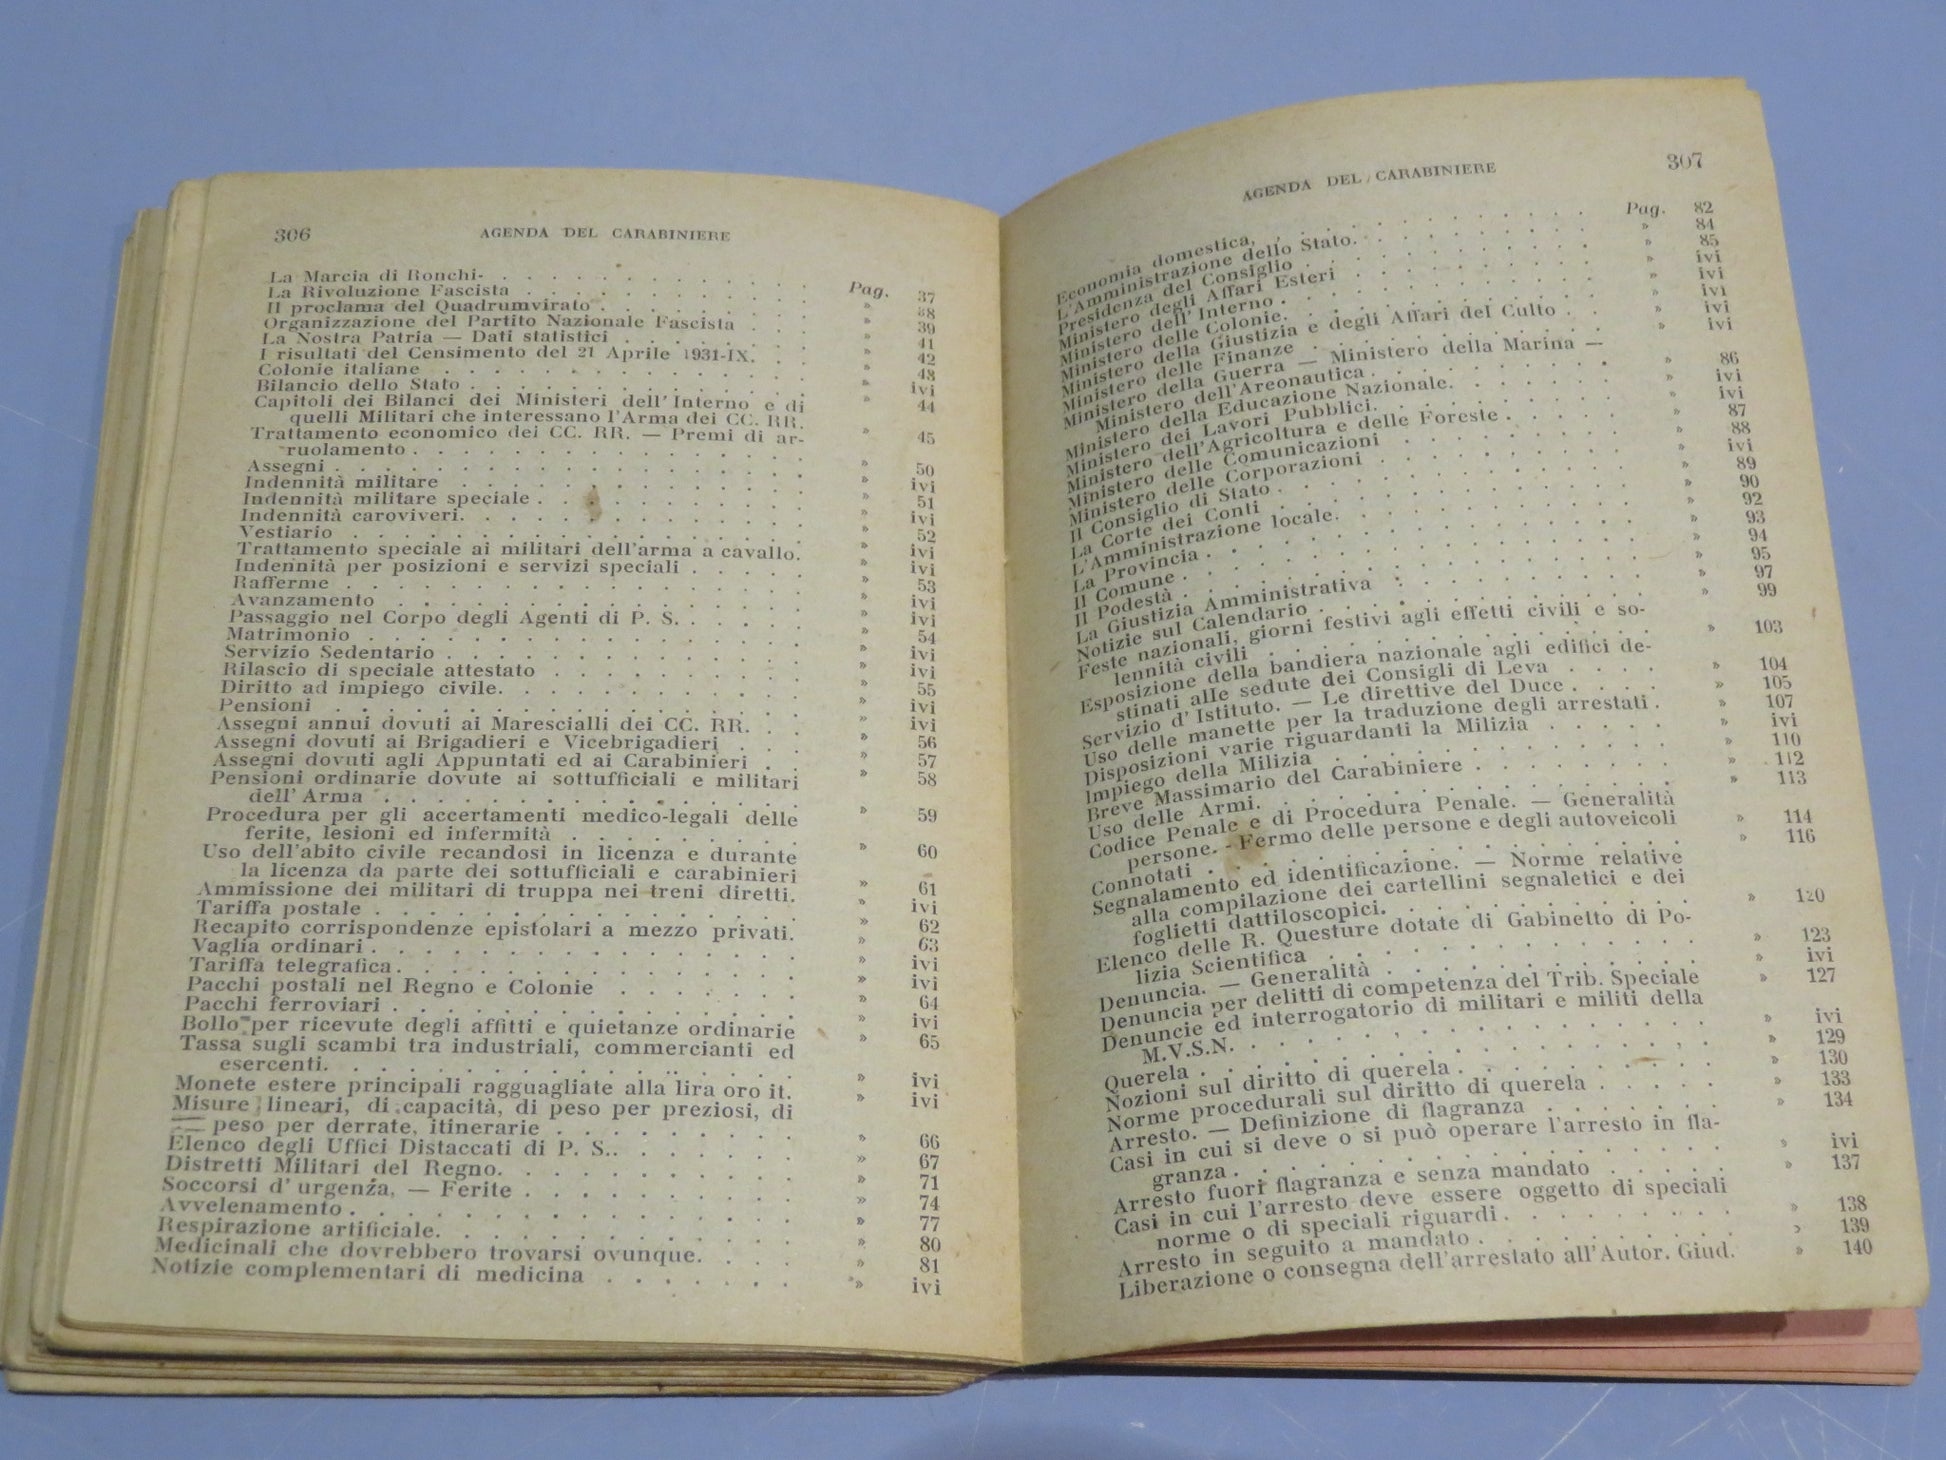 306 AGENDA DEL CARABINIERE
La Marcia di Ronchi- . . . . . . . . . . . Pag. 37
La Rivoluzione Fascista . . . . . . . . . » 38
Il proclama del Quadrumvirato . . . . . . . » 39
Organizzazione del Partito Nazionale Fascista . . . » 41
La Nostra Patria — Dati statistici . . . . . . » 42
I risultati del Censimento del 21 Aprile 1931-IX. . . » 48
Colonie italiane . . . . . . . . . . . . . » ivi
Bilancio dello Stato . . . . . . . . . . . . » 44
Capitoli dei Bilanci dei Ministeri dell'Interno e di
quelli Militari che interessano l'Arma dei CC. RR. » 45
Trattamento economico dei CC. RR. — Premi di ar-
ruolamento . . . . . . . . . . . . . . » 50
Assegni . . . . . . . . . . . . . . . . » ivi
Indennità militare . . . . . . . . . . . . » 51
Indennità militare speciale . . . . . . . . . » ivi
Indennità caroviveri. . . . . . . . . . . . » 52
Vestiario . . . . . . . . . . . . . . . . » ivi
Trattamento speciale ai militari dell'arma a cavallo. » ivi
Indennità per posizioni e servizi speciali . . . . . » 53
Rafferme . . . . . . . . . . . . . . . . » ivi
Avanzamento . . . . . . . . . . . . . . » ivi
Passaggio nel Corpo degli Agenti di P. S. . . . . » 54
Matrimonio . . . . . . . . . . . . . . . » ivi
Servizio Sedentario . . . . . . . . . . . . » ivi
Rilascio di speciale attestato . . . . . . . . . » 55
Diritto ad impiego civile. . . . . . . . . . . » ivi
Pensioni . . . . . . . . . . . . . . . . » ivi
Assegni annui dovuti ai Marescialli dei CC. RR. . . » 56
Assegni dovuti ai Brigadieri e Vicebrigadieri . . . » 57
Assegni dovuti agli Appuntati ed ai Carabinieri . . » 58
Pensioni ordinarie dovute ai sottufficiali e militari
dell' Arma . . . . . . . . . . . . . . . » 59
Procedura per gli accertamenti medico-legali delle
ferite, lesioni ed infermità . . . . . . . . . » 60
Uso dell'abito civile recandosi in licenza e durante
la licenza da parte dei sottufficiali e carabinieri » 61
Ammissione dei militari di truppa nei treni diretti. » ivi
Tariffa postale . . . . . . . . . . . . . . » 62
Recapito corrispondenze epistolari a mezzo privati. » 63
Vaglia ordinari . . . . . . . . . . . . . . » ivi
Tariffa telegrafica . . . . . . . . . . . . . » ivi
Pacchi postali nel Regno e Colonie . . . . . . » 64
Pacchi ferroviari . . . . . . . . . . . . . » ivi
Bollo per ricevute degli affitti e quietanze ordinarie » 65
Tassa sugli scambi tra industriali, commercianti ed
esercenti. . . . . . . . . . . . . . . . » ivi
Monete estere principali ragguagliate alla lira oro it. » ivi
Misure lineari, di capacità, di peso per preziosi, di
peso per derrate, itinerarie . . . . . . . . » 66
Elenco degli Uffici Distaccati di P. S.. . . . . . » 67
Distretti Militari del Regno. . . . . . . . . . » 71
Soccorsi d' urgenza, — Ferite . . . . . . . . » 74
Avvelenamento . . . . . . . . . . . . . . » 77
Respirazione artificiale. . . . . . . . . . . . » 80
Medicinali che dovrebbero trovarsi ovunque. . . . » 81
Notizie complementari di medicina . . . . . . . » ivi
AGENDA DEL CARABINIERE 307
Economia domestica, . . . . . . . . . . . Pag. 82
L'Amministrazione dello Stato. . . . . . . . . » 84
Presidenza del Consiglio . . . . . . . . . . » 85
Ministero degli Affari Esteri . . . . . . . . . » ivi
Ministero dell'Interno . . . . . . . . . . . » ivi
Ministero delle Colonie. . . . . . . . . . . » ivi
Ministero della Giustizia e degli Affari del Culto . . » ivi
Ministero delle Finanze . . . . . . . . . . » ivi
Ministero della Guerra — Ministero della Marina —
Ministero dell'Areonautica . . . . . . . . . » 86
Ministero della Educazione Nazionale. . . . . . » ivi
Ministero dei Lavori Pubblici. . . . . . . . . » ivi
Ministero dell'Agricoltura e delle Foreste . . . . » 87
Ministero delle Comunicazioni . . . . . . . . » 88
Ministero delle Corporazioni . . . . . . . . . » ivi
Il Consiglio di Stato . . . . . . . . . . . . » 89
La Corte dei Conti . . . . . . . . . . . . » 90
L'Amministrazione locale. . . . . . . . . . . » 92
La Provincia . . . . . . . . . . . . . . » 93
Il Comune . . . . . . . . . . . . . . . » 94
Il Podestà . . . . . . . . . . . . . . . » 95
La Giustizia Amministrativa . . . . . . . . . » 97
Notizie sul Calendario . . . . . . . . . . . » 99
Feste nazionali, giorni festivi agli effetti civili e so-
lennità civili . . . . . . . . . . . . . . » 103
Esposizione della bandiera nazionale agli edifici de-
stinati alle sedute dei Consigli di Leva . . . . » 104
Servizio d' Istituto. — Le direttive del Duce . . . . » 105
Uso delle manette per la traduzione degli arrestati . » 107
Disposizioni varie riguardanti la Milizia . . . . . » ivi
Impiego della Milizia . . . . . . . . . . . » 110
Breve Massimario del Carabiniere . . . . . . . » 112
Uso delle Armi. . . . . . . . . . . . . . » 113
Codice Penale e di Procedura Penale. — Generalità
persone. - Fermo delle persone e degli autoveicoli » 114
Connotati . . . . . . . . . . . . . . . » 116
Segnalamento ed identificazione. — Norme relative
alla compilazione dei cartellini segnaletici e dei
foglietti dattiloscopici. . . . . . . . . . . » 120
Elenco delle R. Questure dotate di Gabinetto di Po-
lizia Scientifica . . . . . . . . . . . . . » 123
Denuncia. — Generalità . . . . . . . . . . . » ivi
Denuncia per delitti di competenza del Trib. Speciale » 127
Denuncie ed interrogatorio di militari e militi della
M.V.S.N. . . . . . . . . . . . . . . . » ivi
Querela . . . . . . . . . . . . . . . . » 129
Nozioni sul diritto di querela . . . . . . . . . » 130
Norme procedurali sul diritto di querela . . . . . » 133
Arresto. — Definizione di flagranza . . . . . . . » 134
Casi in cui si deve o si può operare l'arresto in fla-
granza . . . . . . . . . . . . . . . . » ivi
Arresto fuori flagranza e senza mandato . . . . . » 137
Casi in cui l'arresto deve essere oggetto di speciali
norme o di speciali riguardi. . . . . . . . . » 138
Arresto in seguito a mandato . . . . . . . . . » 139
Liberazione o consegna dell'arrestato all'Autor. Giud. » 140